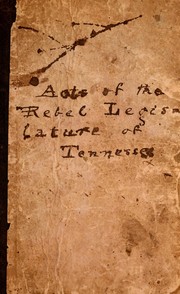 Acts of the
Rebel Legis-
lature of
Tennessee